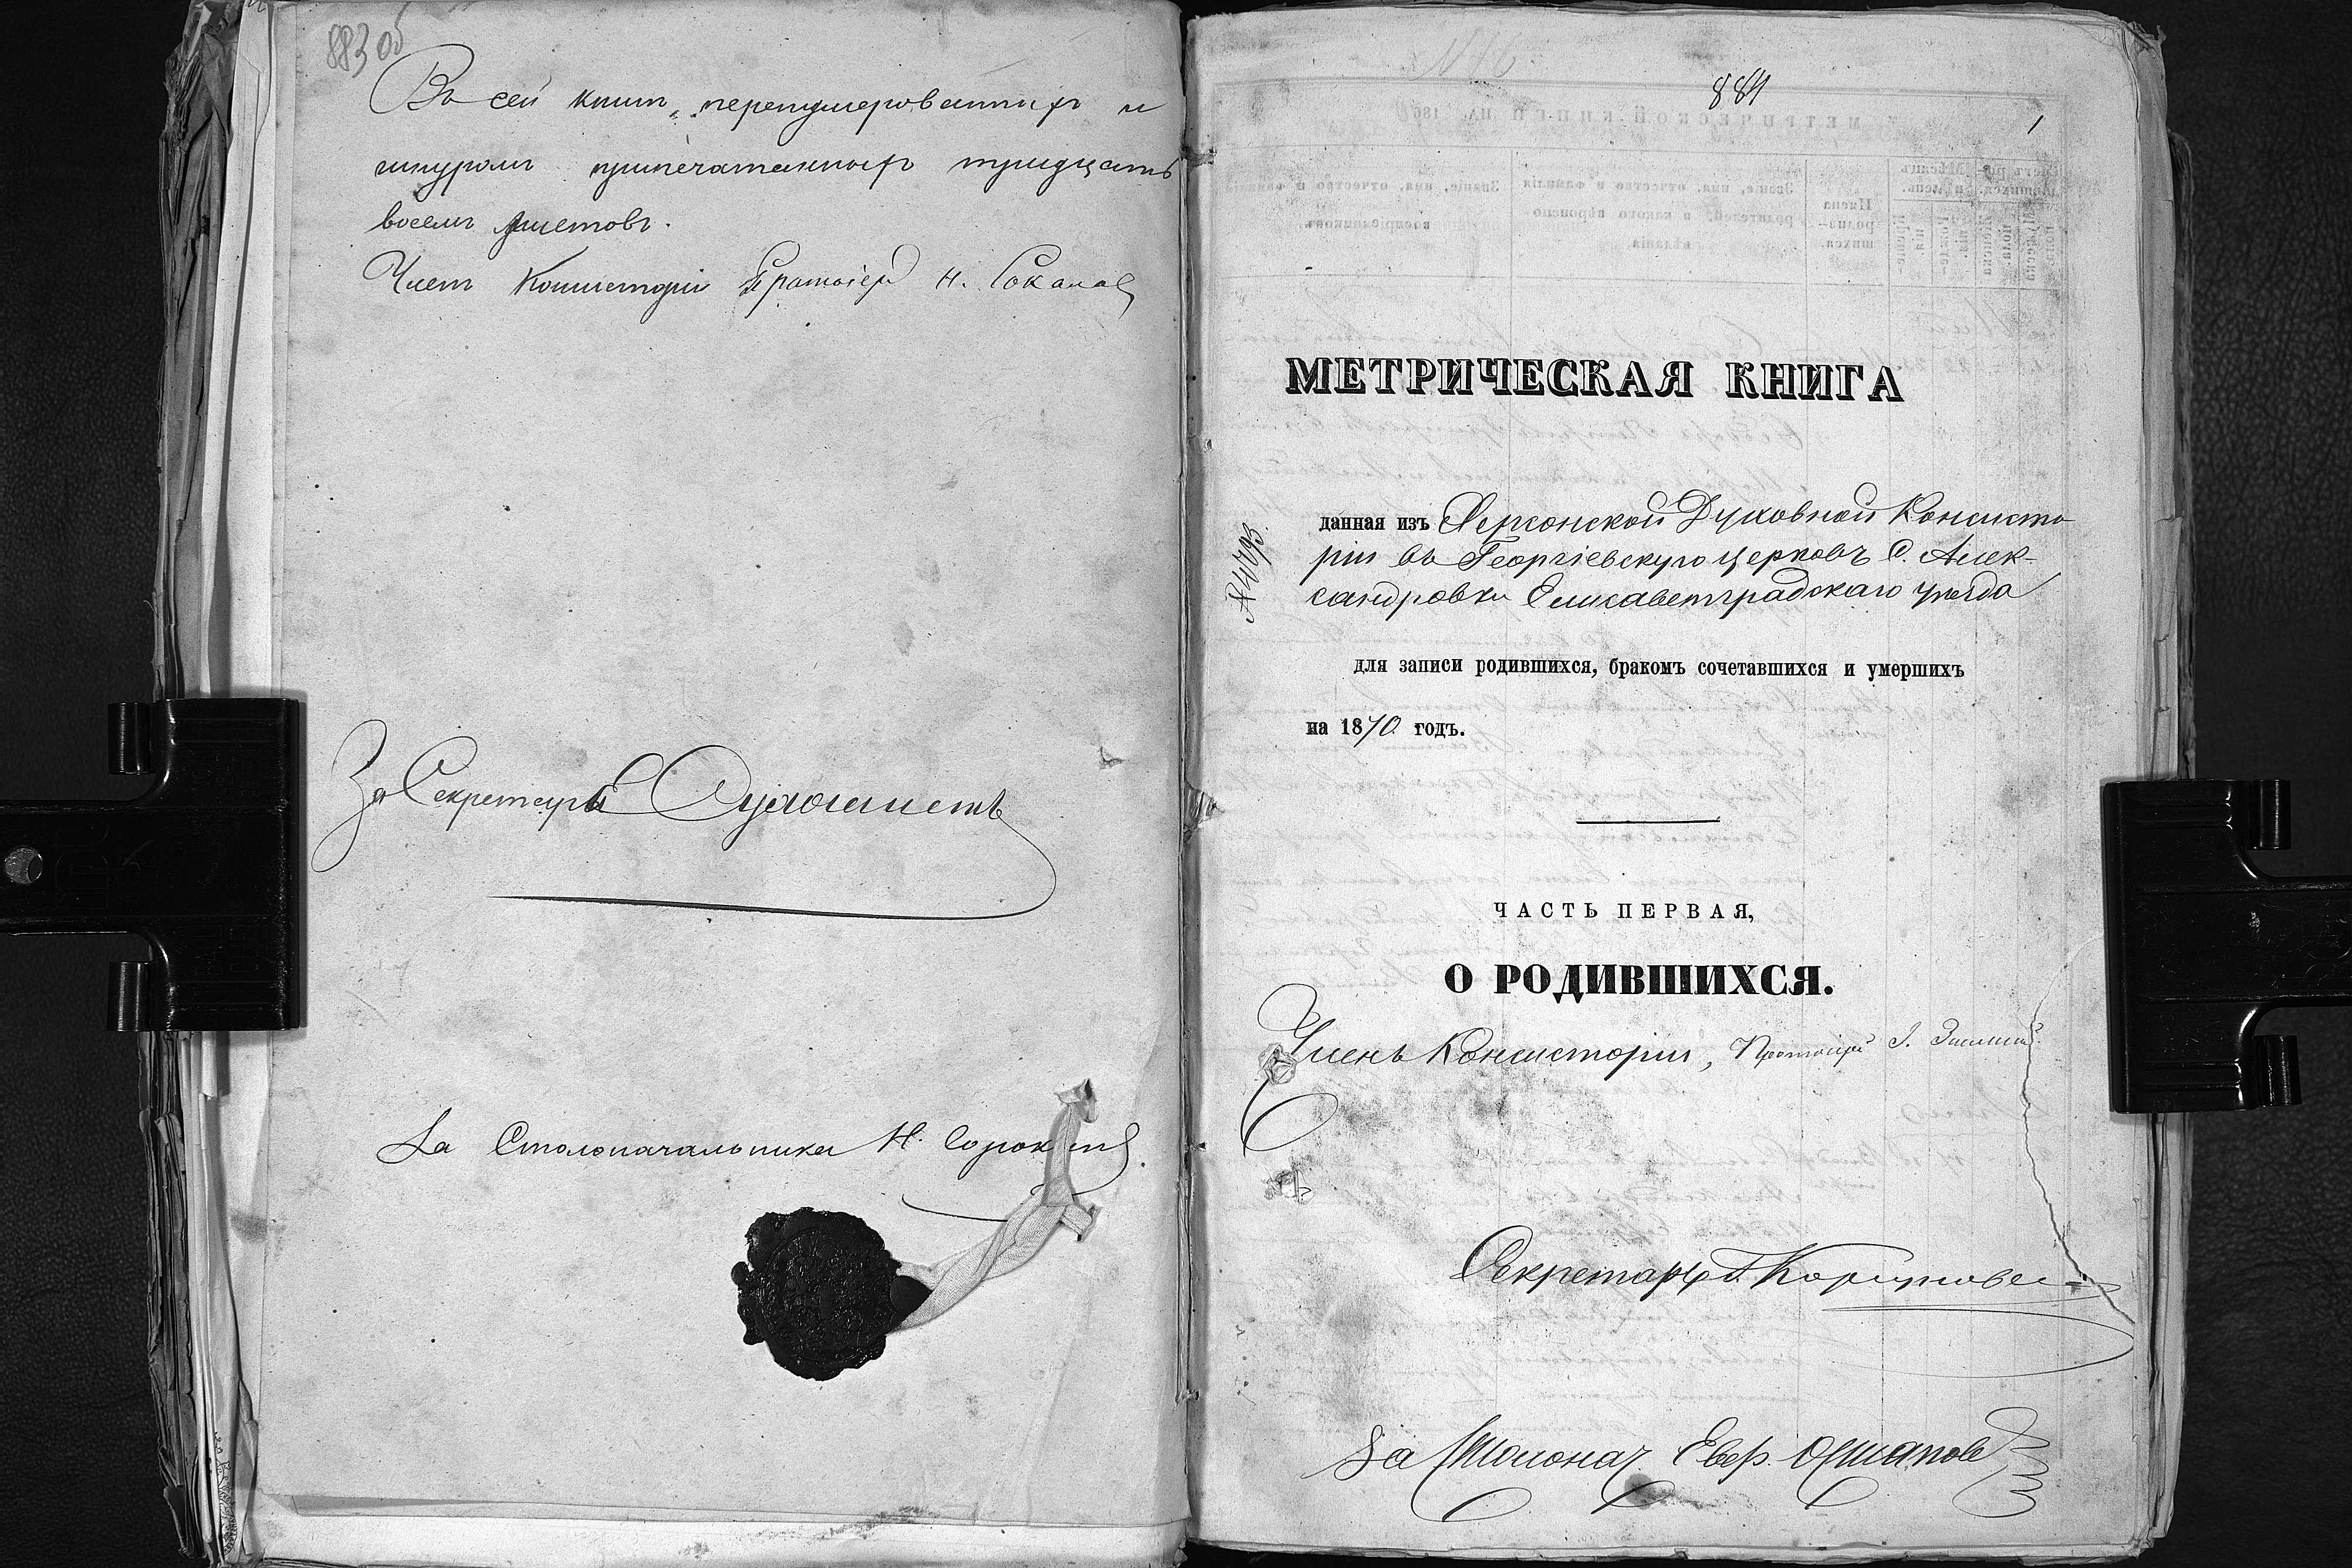 883 об
Въ сей книгѣ перенумерованныхъ и
шнуромъ припечатанныхъ тридцать
восемь листовъ.
Членъ Консисторіи Протоіерей Н. Соколовъ
За Секретаря
За Столоначальника Н. Сорокинъ.
884
1
МЕТРИЧЕСКАЯ КНИГА
данная изъ Херсонской Духовной Консисто
ріи въ Георгіевскую церковь С. Алек-
сандровки Елисаветградскаго уѣзда
№ 4493
для записи родившихся, бракомъ сочетавшихся и умершихъ
на 1870 годъ.
ЧАСТЬ ПЕРВАЯ,
О РОДИВШИХСЯ.
Членъ Консисторіи, Протоіерей І.
Секретарь
За Столонач.